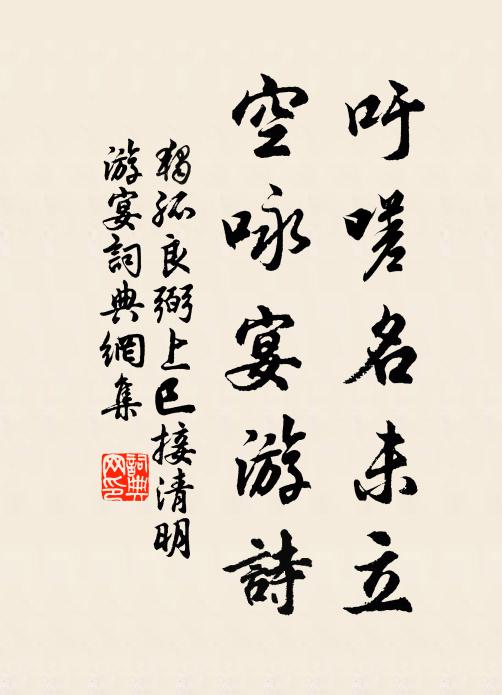 吁嗟名未立
空咏宴游詩
獨孤良弼上巳接清明
游宴詞典網集
詞典
网印